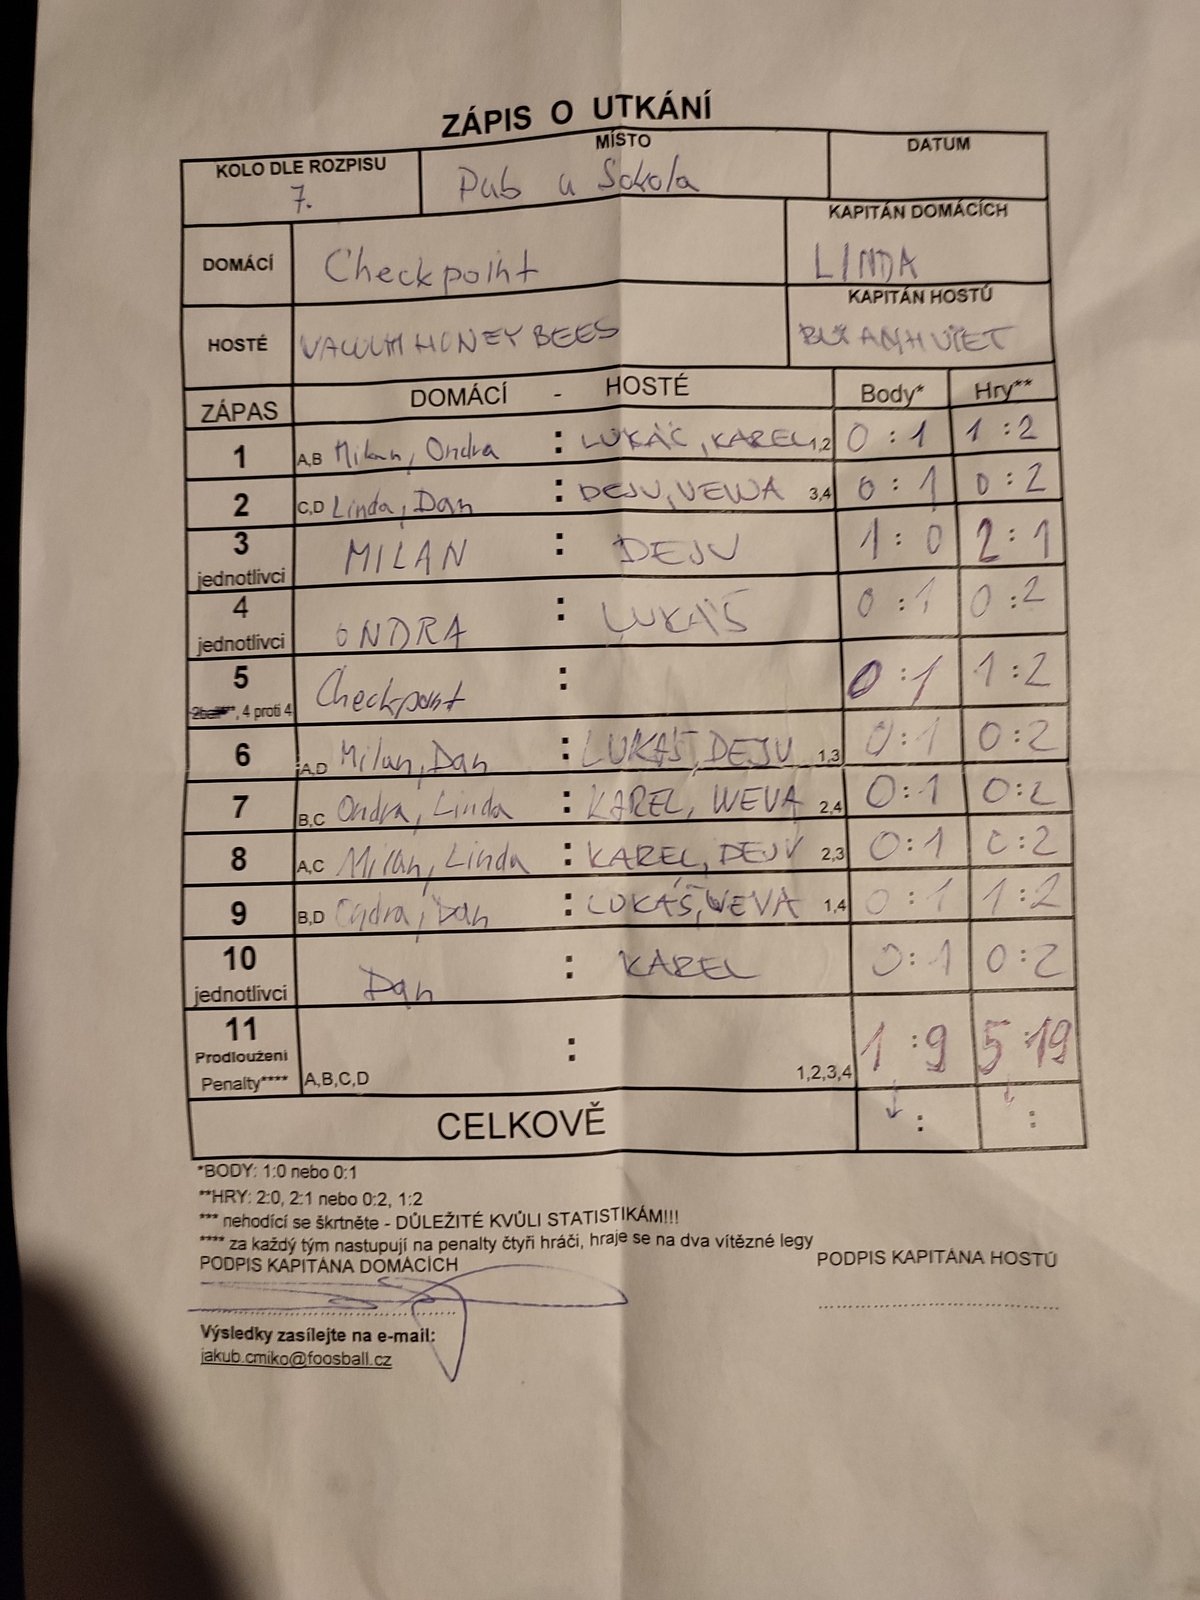 ZÁPIS O UTKÁNÍ
KOLO DLE ROZPISU MÍSTO DATUM
7. Pub u Sokola
KAPITÁN DOMÁCÍCH
DOMÁCÍ Checkpoint LINDA
KAPITÁN HOSTŮ
HOSTÉ VACUUM HONEY BEES BUI ANH VIET
ZÁPAS DOMÁCÍ - HOSTÉ Body* Hry**
1 A,B Milan, Ondra : LUKÁČ, KAREL 1,2 0 : 1 1 : 2
2 C,D Linda, Dan : DEJV, VEVVA 3,4 0 : 1 0 : 2
3 jednotlivci MILAN : DEJV 1 : 0 2 : 1
4 jednotlivci ONDRA : LUKÁŠ 0 : 1 0 : 2
5 2ball***, 4 proti 4 Checkpoint : 0 : 1 1 : 2
6 A,D Milan, Dan : LUKÁŠ, DEJV 1,3 0 : 1 0 : 2
7 B,C Ondra, Linda : KAREL, WEVA 2,4 0 : 1 0 : 2
8 A,C Milan, Linda : KAREL, DEJV 2,3 0 : 1 0 : 2
9 B,D Ondra, Dan : LUKÁŠ, WEVA 1,4 0 : 1 1 : 2
10 jednotlivci Dan : KAREL 0 : 1 0 : 2
11 Prodloužení : 1 : 9 5 : 19
Penalty**** A,B,C,D 1,2,3,4
CELKOVĚ : :
*BODY: 1:0 nebo 0:1
**HRY: 2:0, 2:1 nebo 0:2, 1:2
*** nehodící se škrtněte - DŮLEŽITÉ KVŮLI STATISTIKÁM!!!
**** za každý tým nastupují na penalty čtyři hráči, hraje se na dva vítězné legy
PODPIS KAPITÁNA DOMÁCÍCH PODPIS KAPITÁNA HOSTŮ
Výsledky zasílejte na e-mail:
jakub.cmiko@foosball.cz